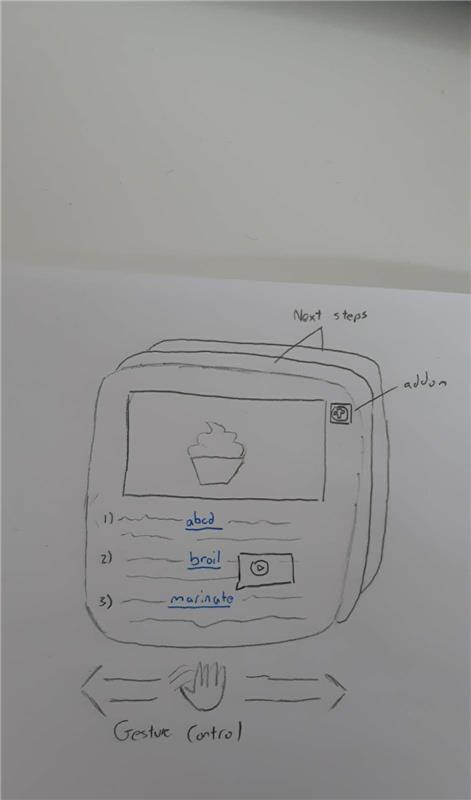 Next steps
addon
1) abcd
2) broil
3) marinate
Gesture Control